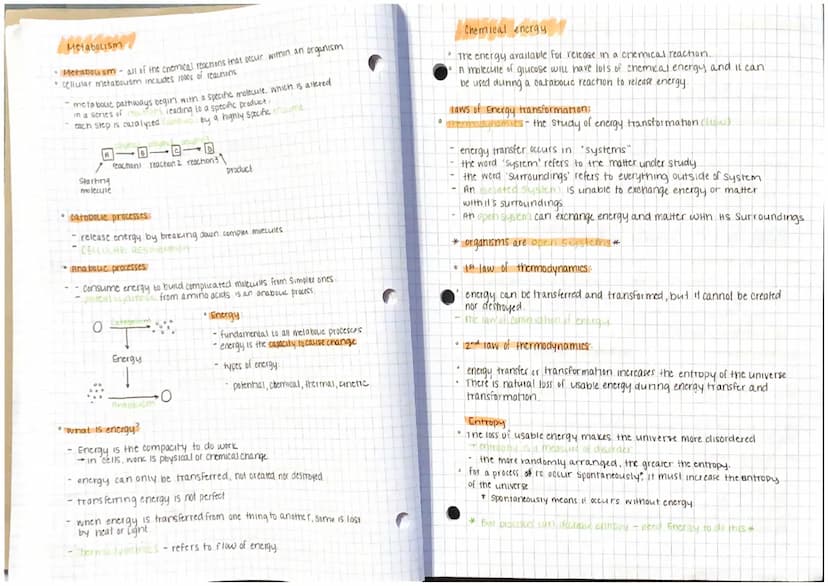 Metabolism
• Metabolism - all of the chemical reactions that occur within an organism
• Cellular metabolism includes 1000s of reactions
- metabolic pathways begin with a specific molecule, which is altered
in a series of reactions leading to a specific product.
- each step is catalysed by a highly specific enzyme
A → B → C → D
reaction 1 reaction 2 reaction 3
Starting
molecule
product
• Catabolic processes
- release energy by breaking down complex molecules
- Cellular respiration
• Anabolic processes
- consume energy to build complicated molecules from simpler ones.
- from amino acids is an anabolic process.
Catabolism
Energy
Anabolism
• Energy
- fundamental to all metabolic processes
- energy is the capacity to cause change
- types of energy:
- potential, chemical, thermal, kinetic
• What is energy?
- Energy is the compacity to do work
→ in cells, work is physical or chemical change
- energy can only be transferred, not created nor destroyed
- transferring energy is not perfect
- when energy is transferred from one thing to another, some is lost
by heat or light.
- Thermodynamics - refers to flow of energy.
Chemical energy
• The energy available for release in a chemical reaction.
• A molecule of glucose will have lots of chemical energy, and it can
be used during a catabolic reaction to release energy
laws of Energy transformation:
• Thermodynamics - the study of energy transformation (laws)
- energy transfer occurs in "systems"
- the word 'system' refers to the matter under study
- the word 'surroundings' refers to everything outside of system
- An isolated system is unable to exchange energy or matter
with it's surroundings
- An open system can exchange energy and matter with its surroundings
* organisms are open systems *
• 1st law of thermodynamics:
• energy can be transferred and transformed, but it cannot be created
nor destroyed.
- the law of conservation of energy
• 2nd law of thermodynamics:
• energy transfer or transformation increases the entropy of the universe
• There is natural loss of usable energy during energy transfer and
transformation.
Entropy
• The loss of usable energy makes the universe more disordered
→ entropy is a measure of disorder
- the more randomly arranged, the greater the entropy.
• for a process to occur spontaneously*, it must increase the entropy
of the universe
* spontaneously means it occurs without energy
* But process can decrease entropy - need energy to do this *